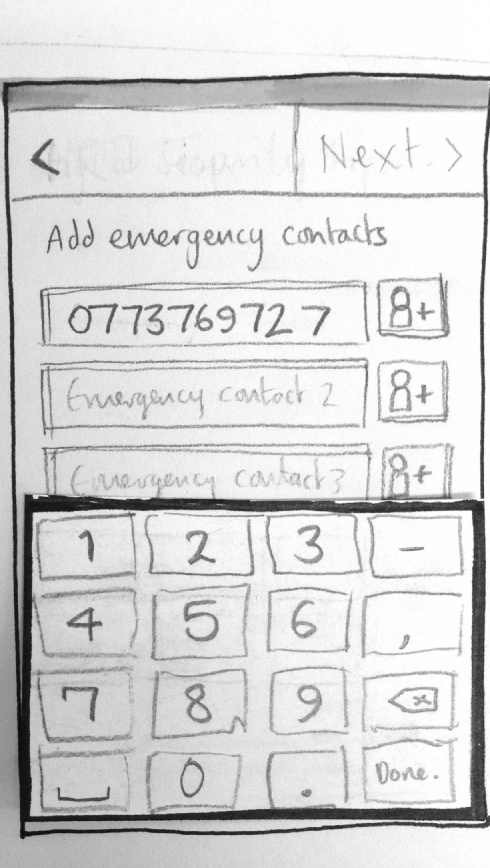 < Next. >
Add emergency contacts
0773769727 8+
Emergency contact 2 8+
Emergency contact 3 8+
1 2 3 -
4 5 6 ,
7 8 9 x
0 . Done.